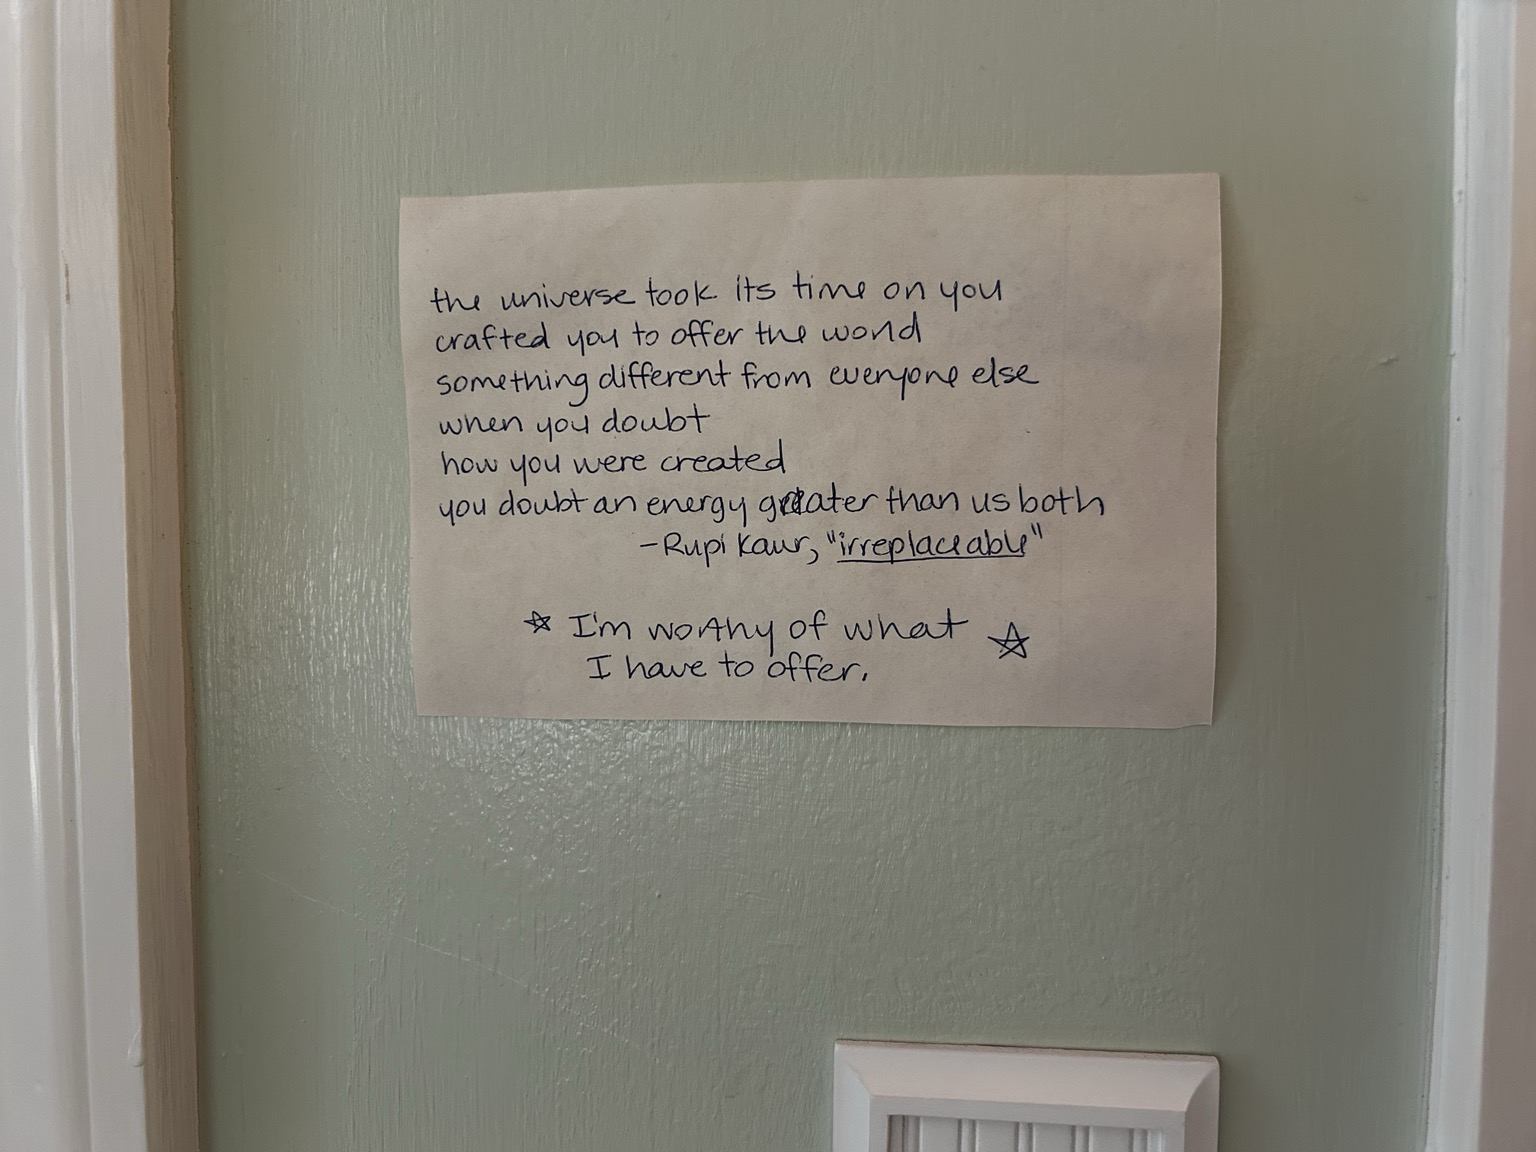 the universe took its time on you
crafted you to offer the world
something different from everyone else
when you doubt
how you were created
you doubt an energy greater than us both
-Rupi Kaur, "irreplaceable"
☆ I'm worthy of what ☆
I have to offer.